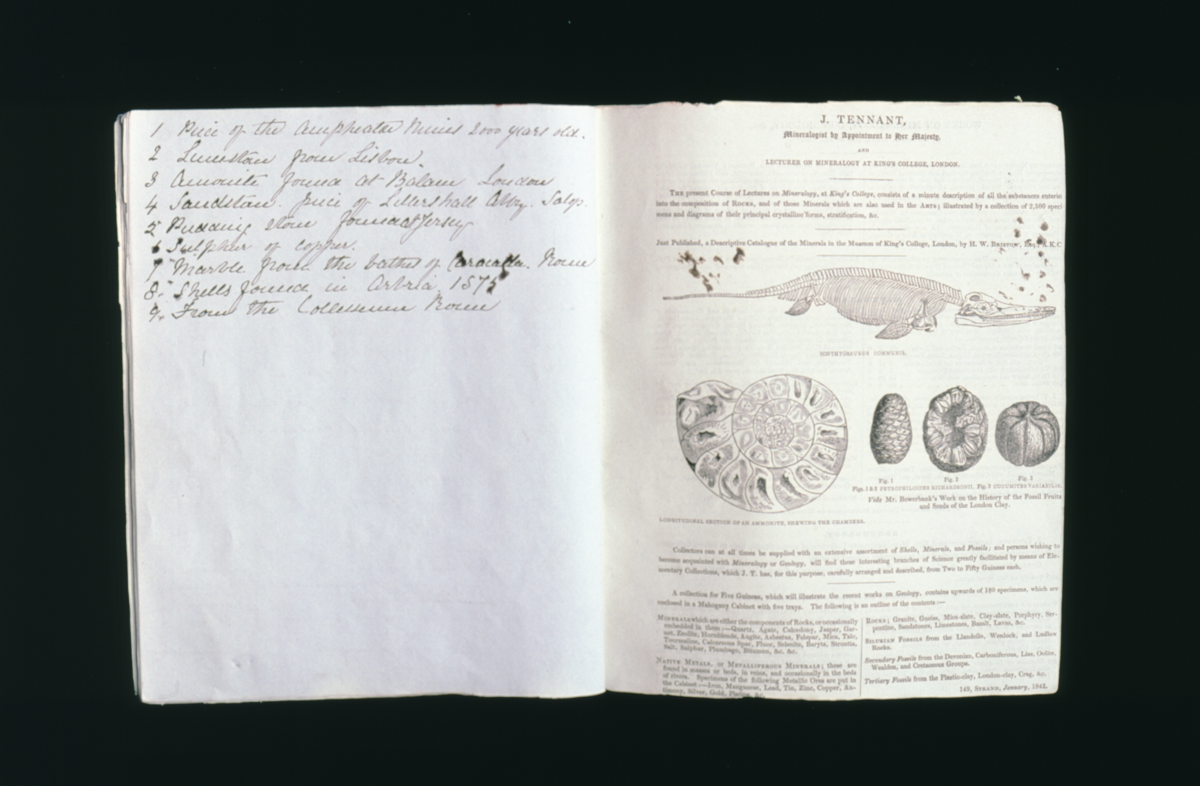 1 Piece of the Ampheatre Nimes 2000 years old.
2 Limestone from Lisbon.
3 Amonite found at Balam London
4 Sandstone. piece of Lilleshall Abby. Salop.
5 Pudding stone found at Jersey
6 Sulpher of copper.
7 Marble from the bathes of Caracalla. Rome
8. Shells found in 1875
9. From the Collesseum Rome
J. TENNANT,
Mineralogist by Appointment to Her Majesty,
AND
LECTURER ON MINERALOGY AT KING'S COLLEGE, LONDON.
THE present Course of Lectures on Mineralogy, at King's College, consists of a minute description of all the substances enterin
into the composition of ROCKS, and of those Minerals which are also used in the ARTS; illustrated by a collection of 2,500 speci
mens and diagrams of their principal crystalline forms, stratification, &c.
Just Published, a Descriptive Catalogue of the Minerals in the Museum of King's College, London, by H. W. BRISTOW, Esq. K.C
ICHTHYOSAURUS COMMUNIS.
Fig. 1 Fig. 2 Fig. 3
Figs. 1 & 2 PETROPHILOIDES RICHARDSONII. Fig. 3 CUCUMITES VARIABILIS.
Vide Mr. Bowerbank's Work on the History of the Fossil Fruits
and Seeds of the London Clay.
LONGITUDINAL SECTION OF AN AMMONITE, SHEWING THE CHAMBERS.
Collectors can at all times be supplied with an extensive assortment of Shells, Minerals, and Fossils; and persons wishing to
become acquainted with Mineralogy or Geology, will find these interesting branches of Science greatly facilitated by means of Ele-
mentary Collections, which J. T. has, for this purpose, carefully arranged and described, from Two to Fifty Guineas each.
A collection for Five Guineas, which will illustrate the recent works on Geology, contains upwards of 180 specimens, which are
enclosed in a Mahogany Cabinet with five trays. The following is an outline of the contents:—
MINERALS which are either the components of Rocks, or occasionally
embedded in them:—Quartz, Agate, Calcedony, Jasper, Gar-
net, Zeolite, Hornblende, Augite, Asbestus, Felspar, Mica, Talc,
Tourmaline, Calcareous Spar, Fluor, Selenite, Baryta, Strontia,
Salt, Sulphur, Plumbago, Bitumen, &c. &c.
NATIVE METALS, or METALLIFEROUS MINERALS; these are
found in masses or beds, in veins, and occasionally in the beds
of rivers. Specimens of the following Metallic Ores are put in
the Cabinet:—Iron, Manganese, Lead, Tin, Zinc, Copper, An-
timony, Silver, Gold, Platina, &c.
ROCKS; Granite, Gneiss, Mica-slate, Clay-slate, Porphyry, Ser-
pentine, Sandstones, Limestones, Basalt, Lavas, &c.
SILURIAN FOSSILS from the Llandeilo, Wenlock, and Ludlow
Rocks.
Secondary Fossils from the Devonian, Carboniferous, Lias, Oolite,
Wealden, and Cretaceous Groups.
Tertiary Fossils from the Plastic-clay, London-clay, Crag, &c.
149, STRAND, January, 1862.